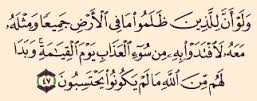 وَلَوْ أَنَّ لِلَّذِينَ ظَلَمُوا۟ مَا فِى ٱلْأَرْضِ جَمِيعًا وَمِثْلَهُۥ
مَعَهُۥ لَٱفْتَدَوْا۟ بِهِۦ مِن سُوٓءِ ٱلْعَذَابِ يَوْمَ ٱلْقِيَٰمَةِ ۚ وَبَدَا
لَهُم مِّنَ ٱللَّهِ مَا لَمْ يَكُونُوا۟ يَحْتَسِبُونَ ٤٧